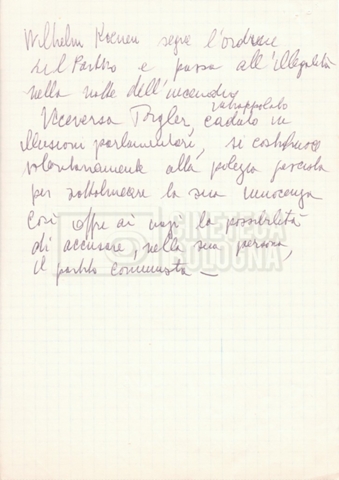 Wilhelm Koenen segue l'ordine
del Partito e passa all'illegalità
nella notte dell'incendio
intrappolato
Viceversa Torgler, caduto in
illusioni parlamentari, si costituisce
volontariamente alla polizia
per sottolineare la sua innocenza
Così offre ai nazi la possibilità
di accusare, nella sua persona,
il partito comunista —
CINETECA
BOLOGNA